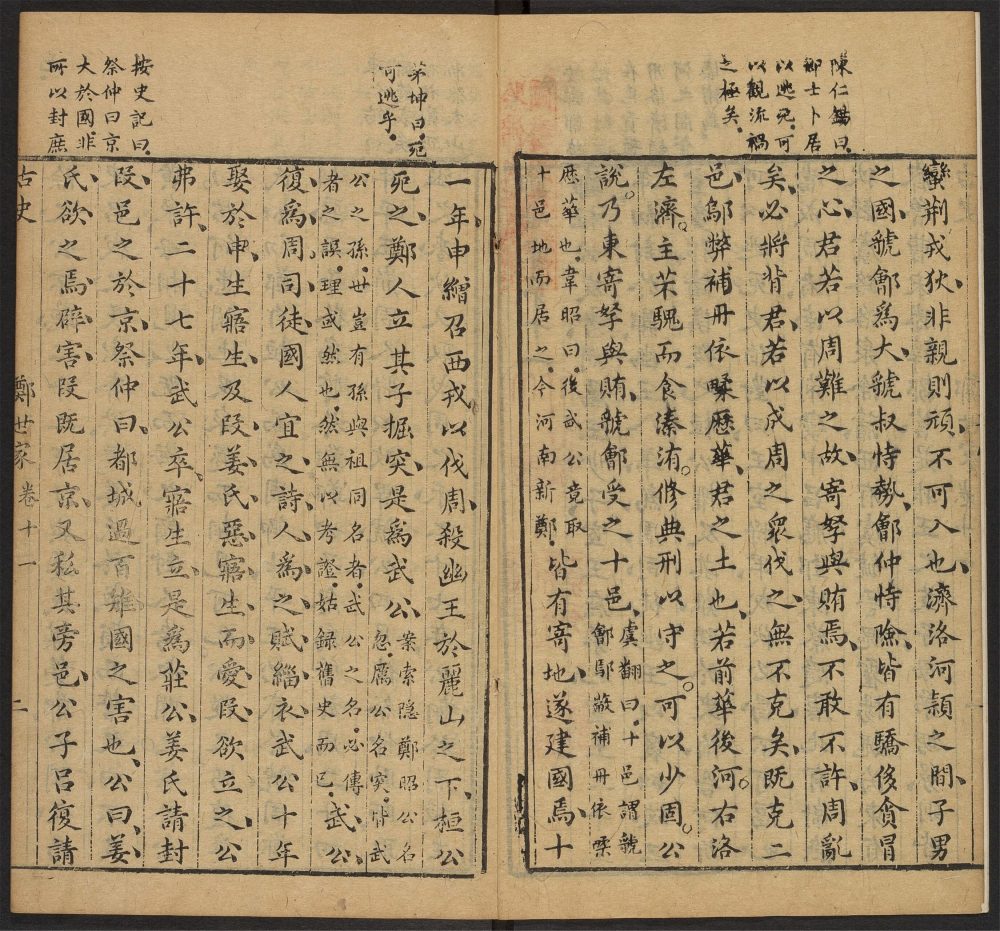 陳仁錫曰
鄭士卜居
以逃死可
以觀流禍
之極矣
蠻荆戎狄非親則頑不可入也濟洛河潁之間子男
之國虢鄶爲大虢叔恃勢鄶仲恃險皆有驕侈貪冒
之心君若以周難之故寄孥與賄焉不敢不許周亂
矣必將背君君若以成周之衆伐之無不克矣既克二
邑鄔弊補丹依㽥歷華君之土也若前華後河右洛
左濟主芣騩而食溱洧修典刑以守之可以少固公
說乃東寄孥與賄虢鄶受之十邑虞翻曰十邑謂虢鄶鄔蔽補丹依㽥
歷華也韋昭曰後武公竟取十邑地而居之今河南新鄭皆有寄地遂建國焉十
茅坤曰死
可逃乎
按史記曰
祭仲曰京
大於國非
所以封庶
一年申繒召西戎以伐周殺幽王於麗山之下桓公
死之鄭人立其子掘突是爲武公案索隱鄭昭公名忽厲公名突皆武
公之孫世豈有孫與祖同名者武公之名必傳者之誤理或然也然無以考證姑録舊史而已武公
復爲周司徒國人宜之詩人爲之賦緇衣武公十年
娶於申生寤生及段姜氏惡寤生而愛段欲立之公
弗許二十七年武公卒寤生立是爲莊公姜氏請封
段邑之於京祭仲曰都城過百雉國之害也公曰姜
氏欲之焉辟害段既居京又私其旁邑公子呂復請
古史 鄭世家 卷十一 二